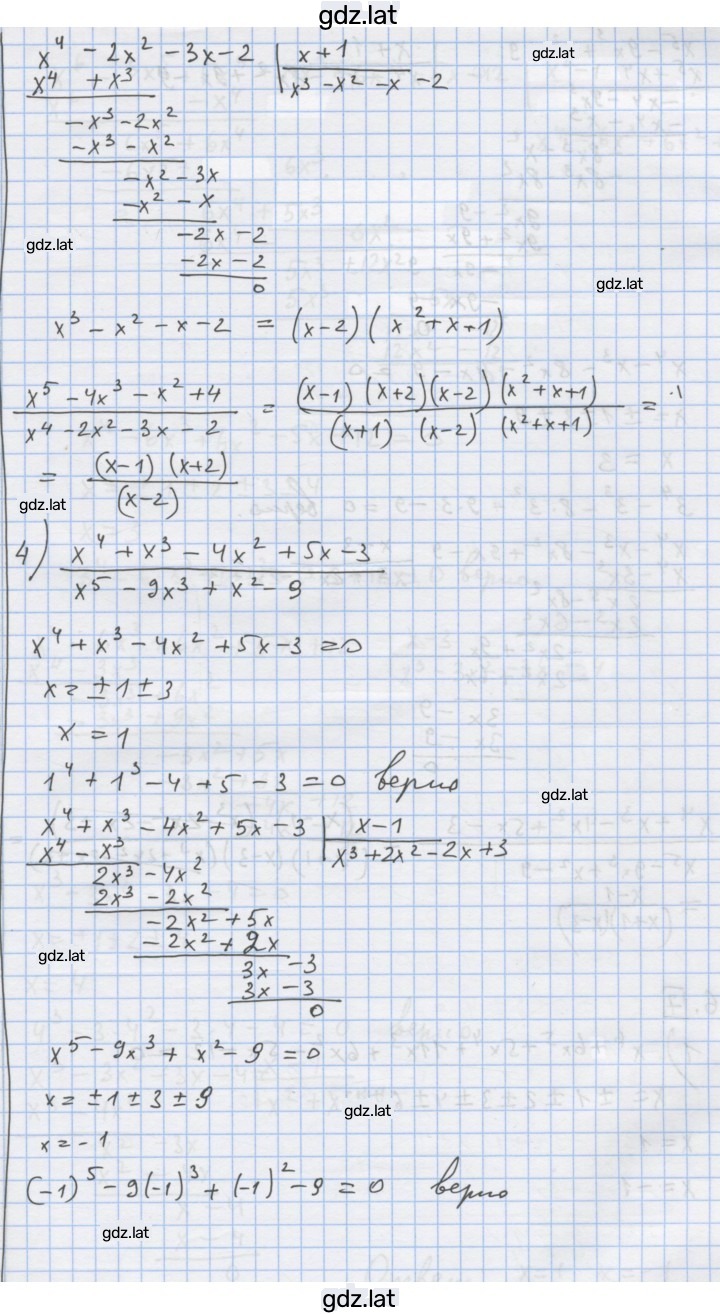 gdz.lat
x⁴ - 2x² - 3x - 2 | x + 1
gdz.lat
x⁴ + x³ | x³ - x² - x - 2
- x³ - 2x²
- x³ - x²
- x² - 3x
- x² - x
- 2x - 2
gdz.lat
- 2x - 2
0
gdz.lat
x³ - x² - x - 2 = (x-2) (x² + x + 1)
x⁵ - 4x³ - x² + 4 / x⁴ - 2x² - 3x - 2 = (x-1) (x+2) (x-2) (x² + x + 1) / (x+1) (x-2) (x² + x + 1) =
= (x-1) (x+2) / (x-2)
gdz.lat
4) x⁴ + x³ - 4x² + 5x - 3 / x⁵ - 9x³ + x² - 9
x⁴ + x³ - 4x² + 5x - 3 = 0
x = ± 1 ± 3
x = 1
1⁴ + 1³ - 4 + 5 - 3 = 0 верно
gdz.lat
x⁴ + x³ - 4x² + 5x - 3 | x - 1
x⁴ - x³ | x³ + 2x² - 2x + 3
2x³ - 4x²
2x³ - 2x²
- 2x² + 5x
- 2x² + 2x
gdz.lat
3x - 3
3x - 3
0
x⁵ - 9x³ + x² - 9 = 0
x = ± 1 ± 3 ± 9
gdz.lat
x = - 1
(-1)⁵ - 9(-1)³ + (-1)² - 9 = 0 верно
gdz.lat
gdz.lat